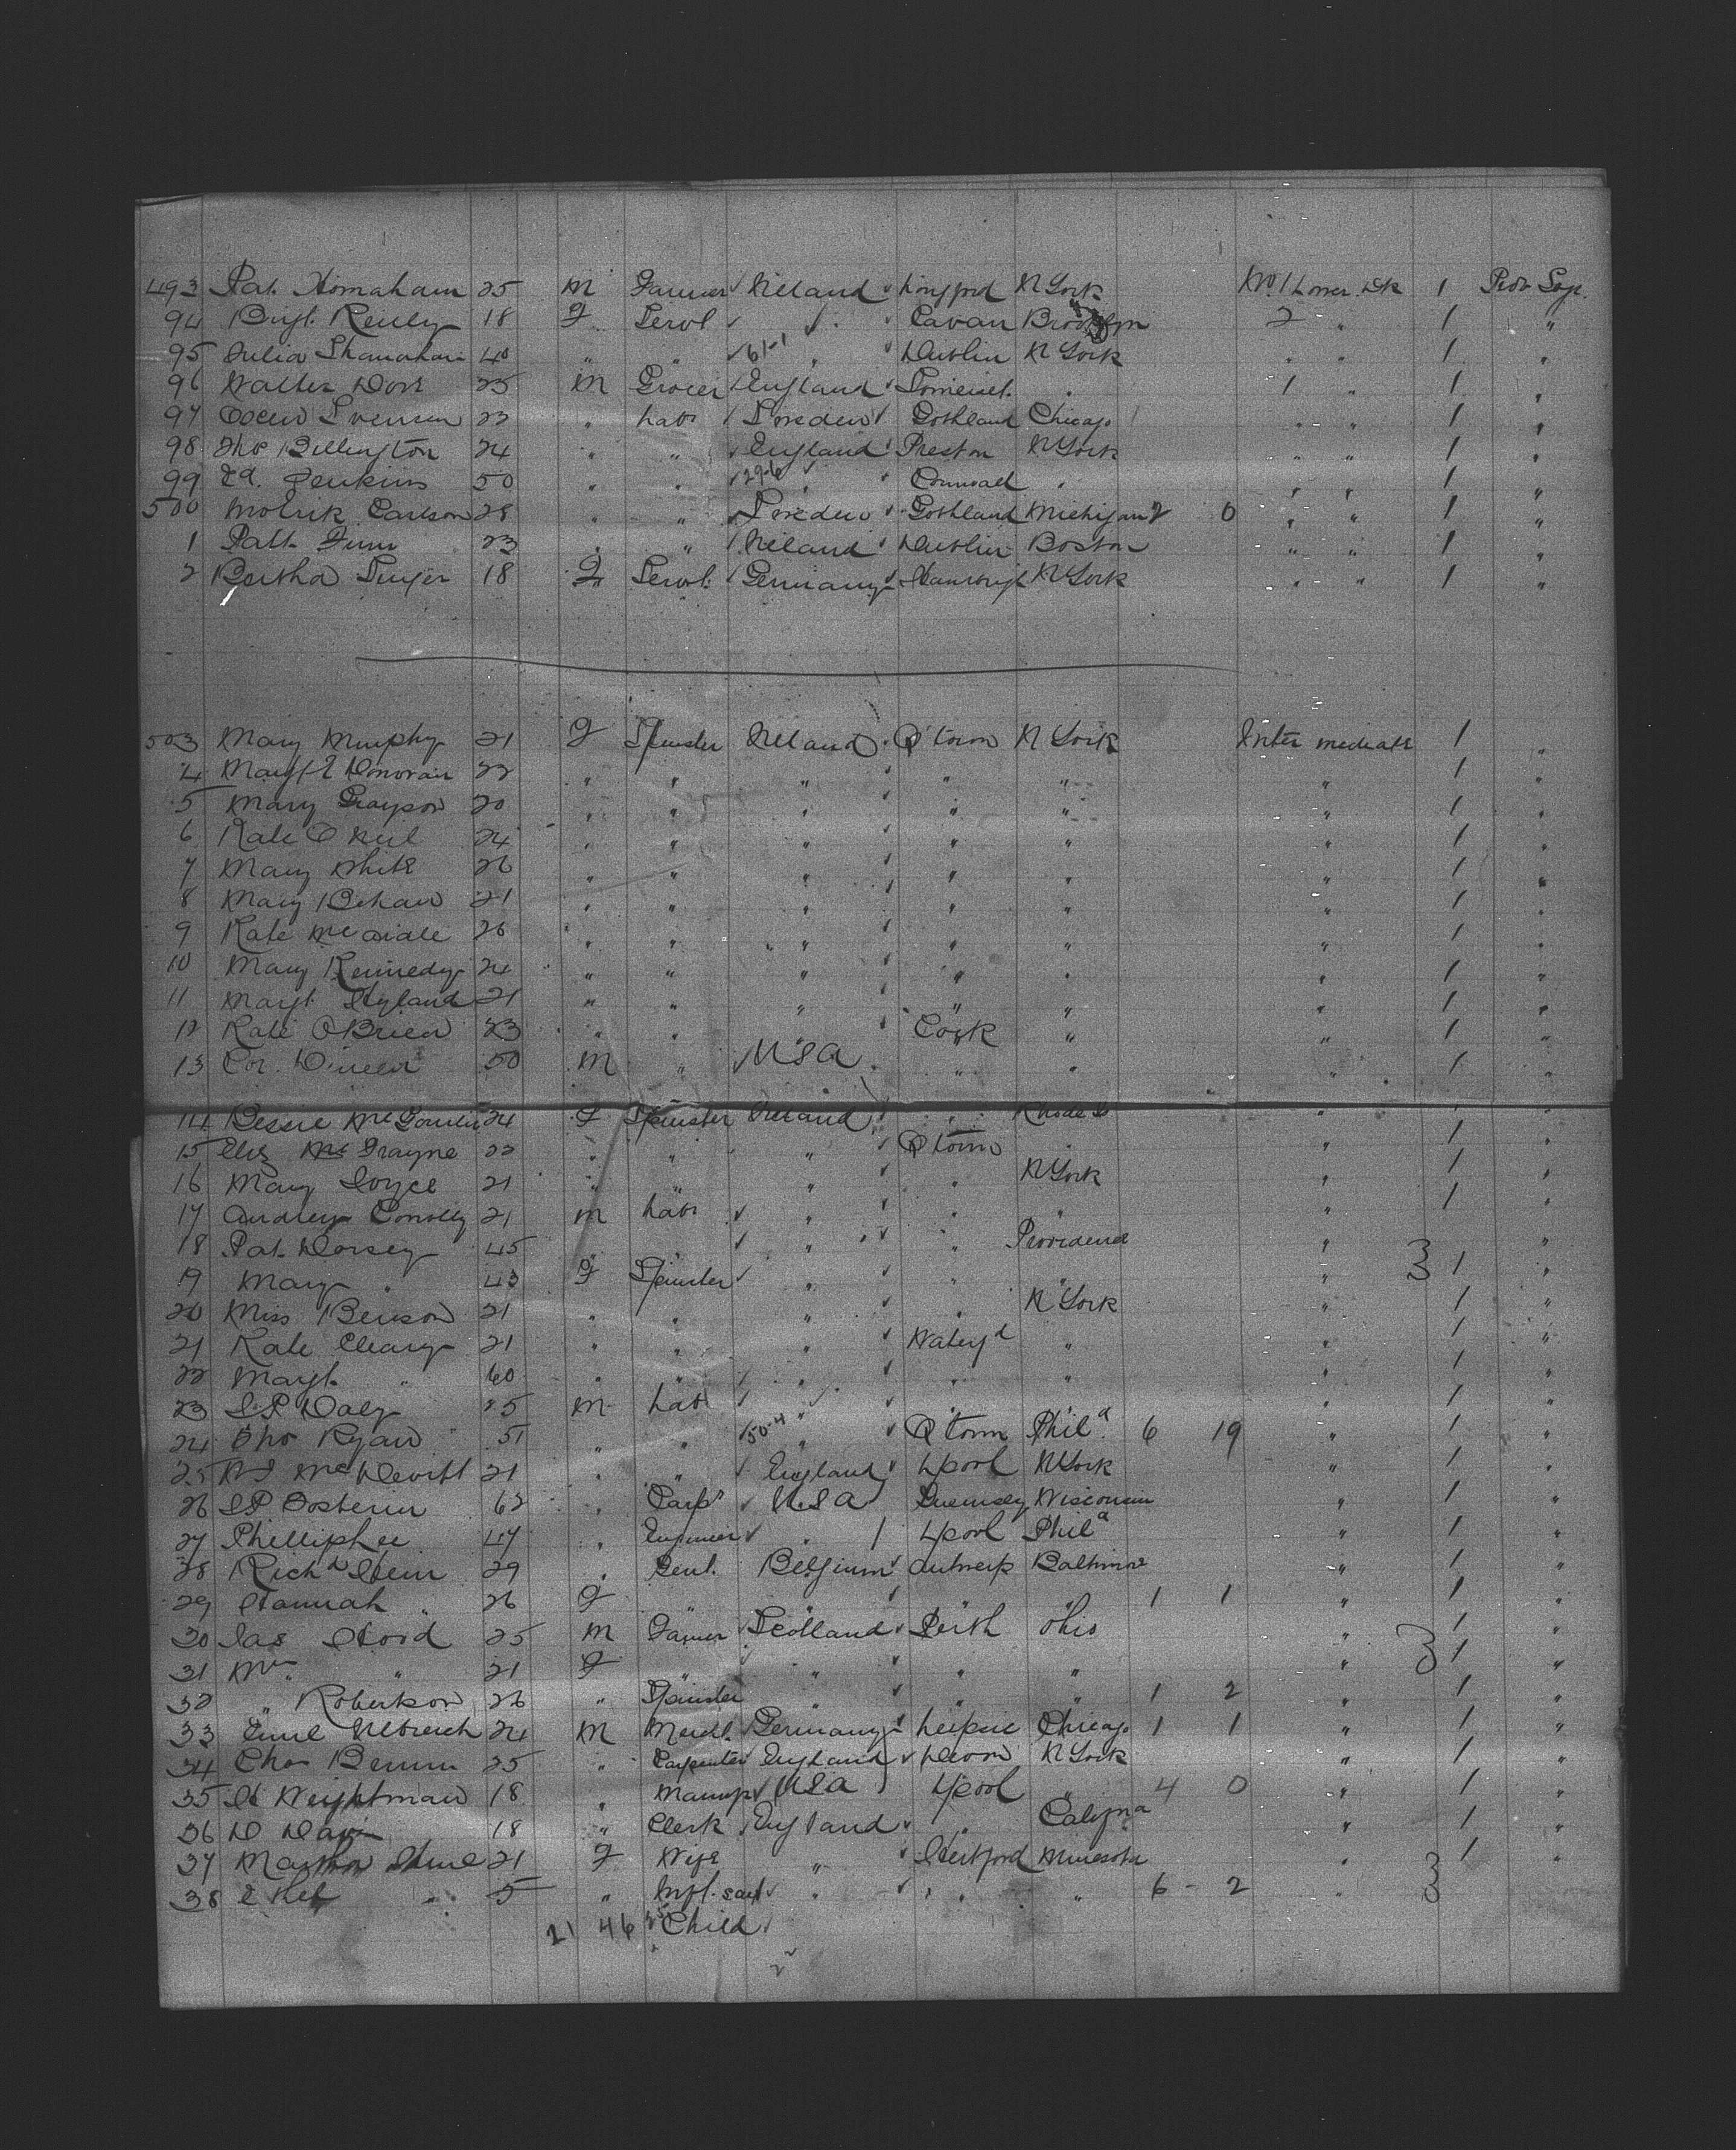 493 Pat. Homaham 25 M Farmer Ireland Longford N York No 1 Lower Dk 1 Prot. Soj.
94 Bugt. Reuly 18 F Servt " Cavan Brooklyn 2 " 1 "
95 Julia Shanahan 40 " " 61-1 " Dublin N York " " 1 "
96 Walter Dove 25 M Grocer England Somerset " 1 " 1 "
97 Svensen 22 " Labr Sweden Gothland Chicago " " 1 "
98 Tho Billington 24 " " England Preston N York " " 1 "
99 Ed. Jenkins 50 " " 29-6 " Cornwall " " " 1 "
500 Carlson 28 " " Sweden Gothland Michigan 2 0 " " 1 "
1 Patt. Finn 23 " " Ireland Dublin Boston " " 1 "
2 Bertha 18 F Servt. Germany N York " " 1 "
503 Mary Murphy 21 F Spinster Ireland Q'town N York Inter mediate 1 "
4 Margt Donovan 22 " " " " " " 1 "
5 Mary Grayson 20 " " " " " " 1 "
6 Kate O Neil 24 " " " " " " 1 "
7 Mary White 26 " " " " " " 1 "
8 Mary Behan 21 " " " " " " 1 "
9 Kate 26 " " " " " " 1 "
10 Mary Kennedy 24 " " " " " " 1 "
11 Margt. Hyland 21 " " " " " " 1 "
12 Kate O'Brien 23 " " " Cork " " 1 "
13 Cor. Dineen 50 M " U S A " " " 1 "
14 Bessie 24 F Spinster Ireland " Rhode Is " 1 "
15 Eliz Mc Grayne 22 " " " Q town " " 1 "
16 Mary Joyce 21 " " " " N York " 1 "
17 Andrew Conolly 21 M Labr " " " " 1 "
18 Pat. Dorsey 45 " " " " Providence " "
19 Mary " 43 F Spinster " " " " 3 1 "
20 Miss Benson 21 " " " " N York " 1 "
21 Kate Cleary 21 " " " Waterfd " " 1 "
22 Margt. " 60 " " " " " " 1 "
23 J P Daly 25 M Labr " " " " 1 "
24 Tho Ryan 51 " " 50-4 " Q town Phila 6 19 " 1 "
25 Mc Devitt 21 " " England Lpool N York " 1 "
26 J P 62 " Carpr U.S.A Guernsey Wisconsin " 1 "
27 Phillip Lee 47 " Engineer " Lpool Phila " 1 "
28 Richd 29 " Gent. Belgium Antwerp Baltimore " 1 "
29 Hannah " 26 F " " " " 1 1 " 1 "
30 Jas Hood 25 M Farmer Scotland Perth Ohio " 1 "
31 Mrs " 21 F " " " " " 3 1 "
32 " Robertson 26 " Spinster " " " 1 2 " 1 "
33 Emil Ulbreich 24 M Merch. Germany Leipsic Chicago 1 1 " 1 "
34 Chas 25 " Carpenter England Devon N York " 1 "
35 H Weightman 18 " U.S.A Lpool " 4 0 " 1 "
36 D Davi 18 " Clerk England " Califna " 1 "
37 Martha 21 F Wife " Hertford Minesota " 1 "
38 " 5 " Infl. " " " 6 - 2 " 3
21 46 Child